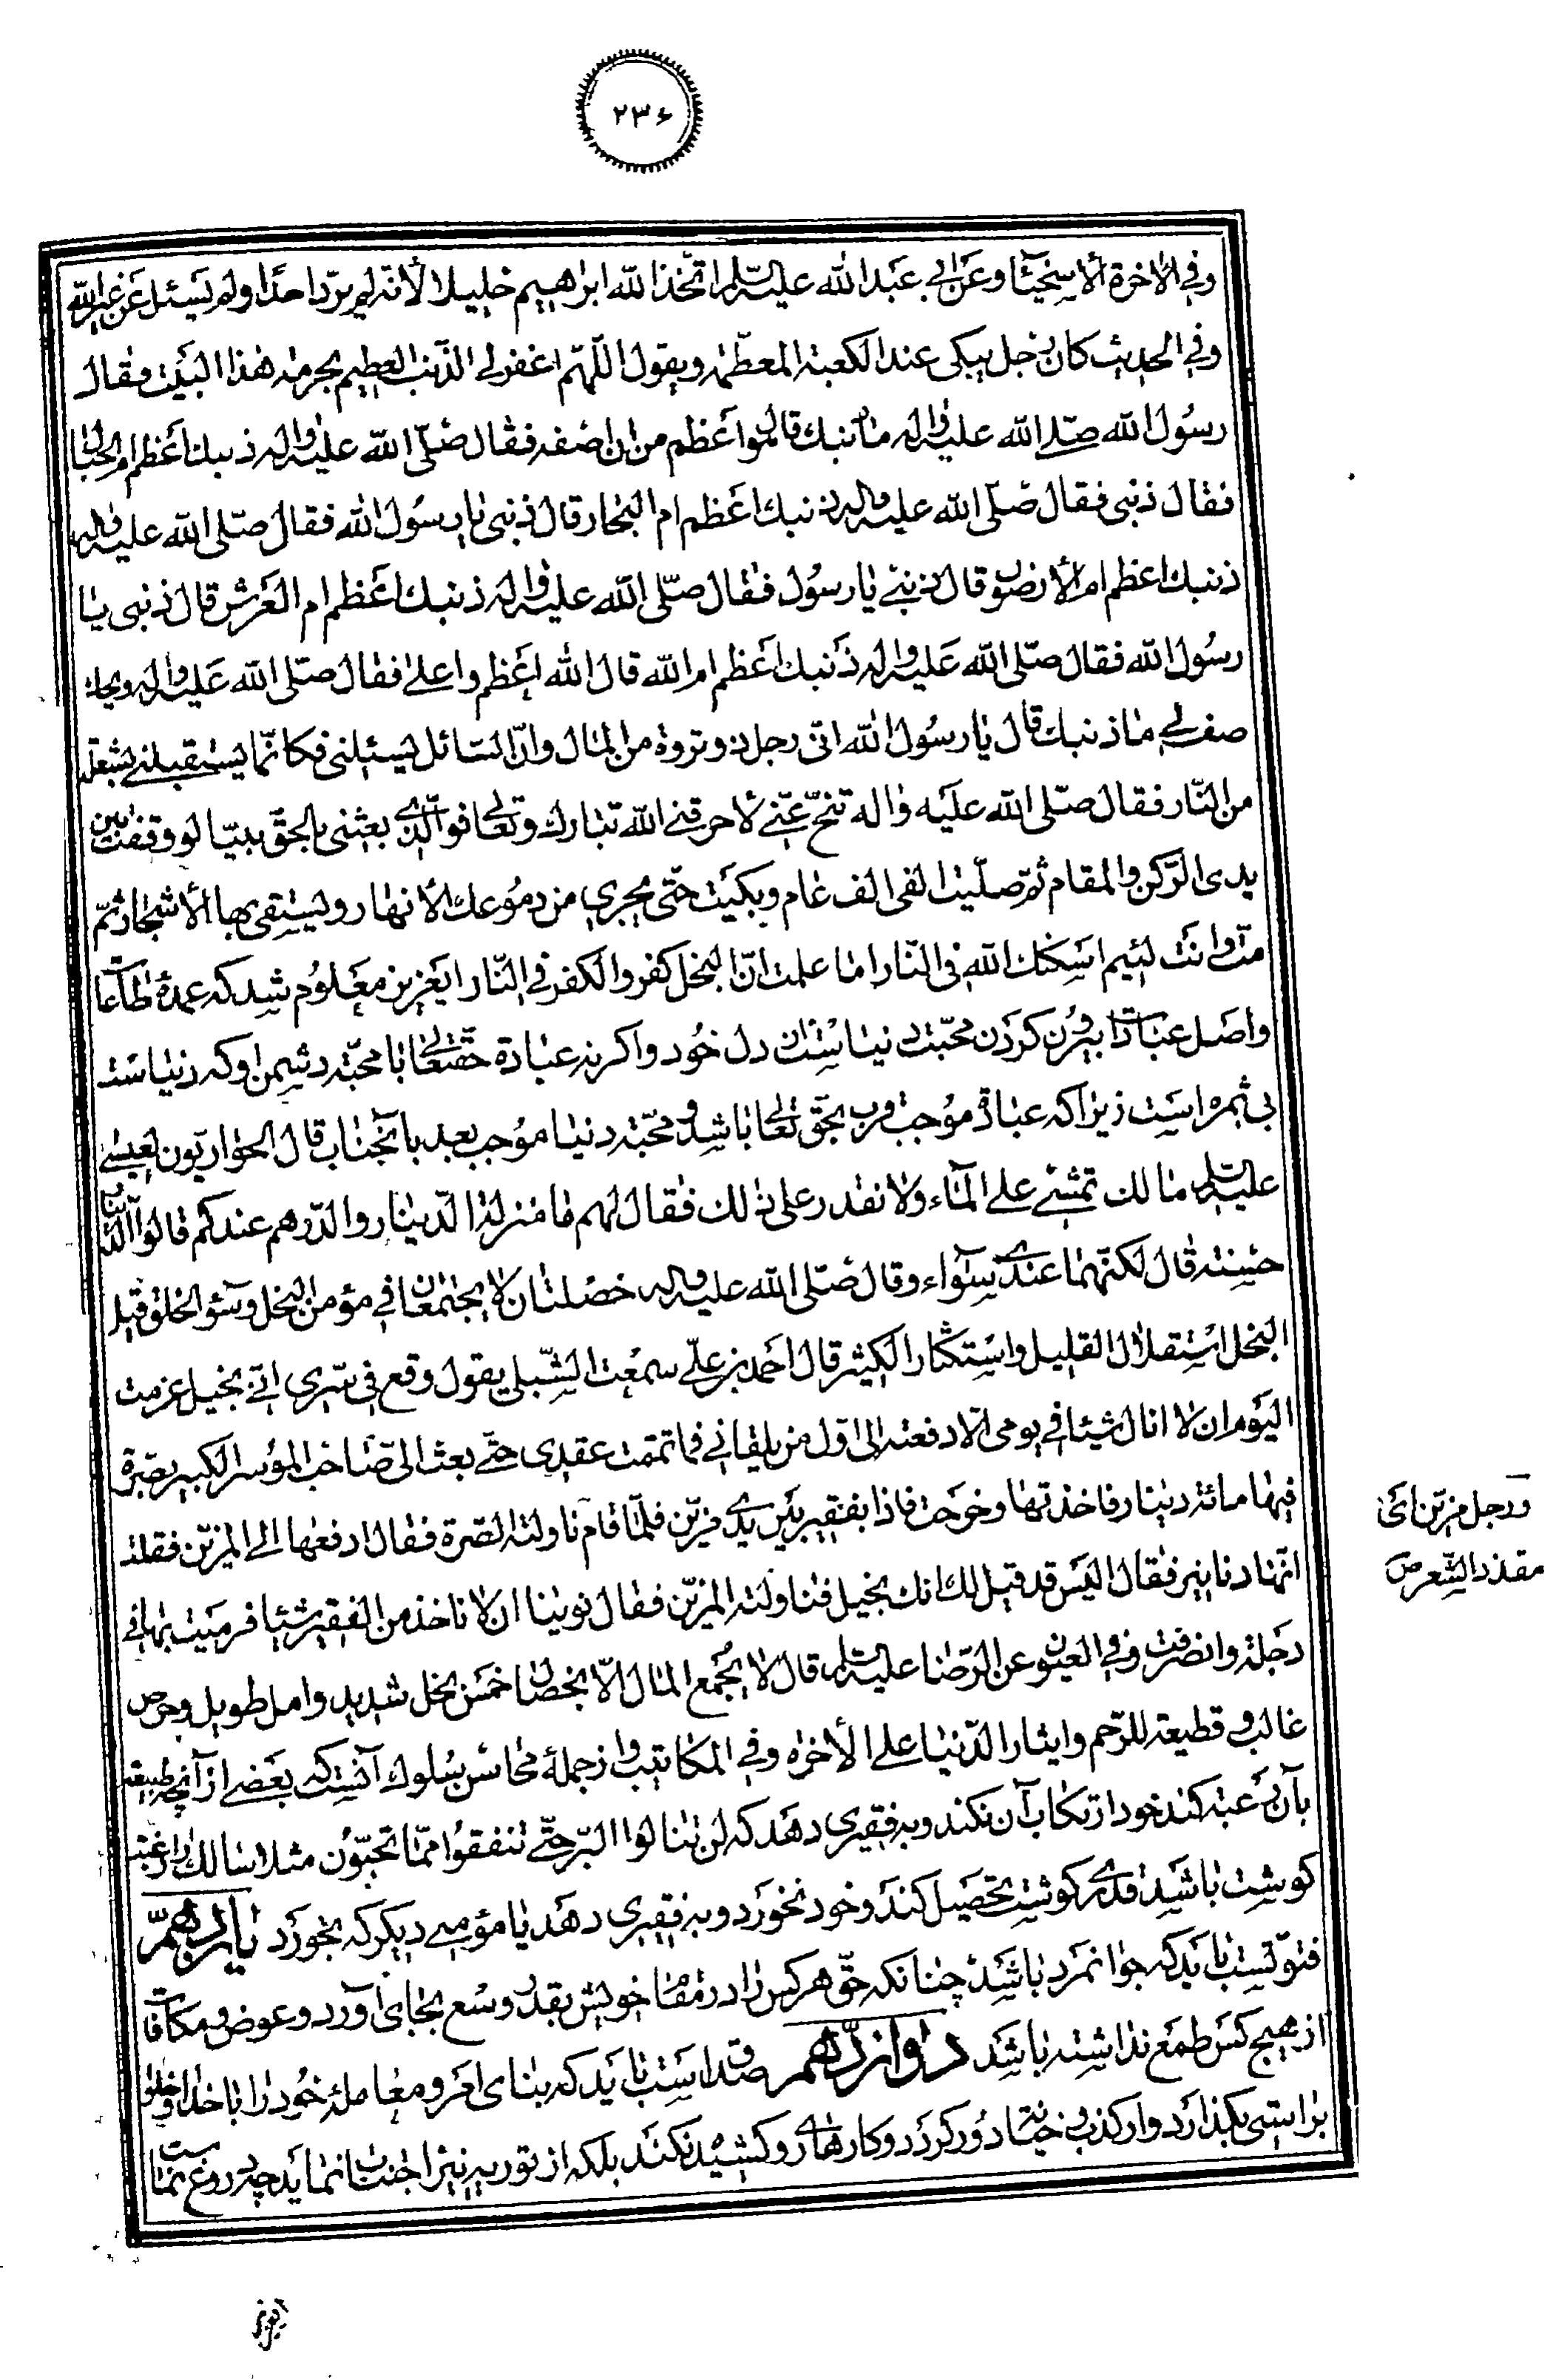 ۲۳۶
وفی الاخرة الاسخیّا وعن ابی عبدالله علیه السّلم اتّخذ الله ابراهیم خلیلا لانّه لم یردّ احدًا ولم یسئل عن غیر الله
وفی الحدیث کان رجل یبکی عند الکعبة المعظّمه ویقول اللّهمّ اغفر لی الذّنب العظیم بحرمة هذا البیت فقال
رسول الله صلّی الله علیه واله ما ذنبك قال هو اعظم من ان اصفه فقال صلّی الله علیه واله ذنبك اعظم ام الجبال
فقال ذنبی فقال صلّی الله علیه واله ذنبك اعظم ام البحار قال ذنبی یا رسول الله فقال صلّی الله علیه واله
ذنبك اعظم ام الارضون قال ذنبی یا رسول فقال صلّی الله علیه واله ذنبك اعظم ام العرش قال ذنبی یا
رسول الله فقال صلّی الله علیه واله ذنبك اعظم ام الله قال الله اعظم واعلی فقال صلّی الله علیه واله ویحك
صف لی ما ذنبك قال یا رسول الله انّی رجل ذو ثروة من المال وانّ السّائل لیسئلنی فکانّما یستقبلنی بشعلة
من النّار فقال صلّی الله علیه واله تنحّ عنّی لا حرقنی الله تبارك وتعالی فوالّذی بعثنی بالحقّ نبیّا لو وقفت بین
یدی الرّکن والمقام ثمّ صلّیت الفی الف عام وبکیت حتّی یجری من دموعك الانهار ولیستقی بها الاشجار ثمّ
متّ وانت لئیم اسکنك الله فی النّار اما علمت انّ البخل کفر والکفر فی النّار ایعزیز معلوم شد که عمدهٔ طاعات
واصل عبادات بیرون کردن محبّت دنیاست از دل خود واکر نه عبادة حقتعالی با محبّة دشمن او که دنیاست
بی ثمره است زیراکه عبادة موجب قرب بحقّ تعالی باشد و محبّة دنیا موجب بعد بانجناب قال الحواریّون لعیسی
علیه السّلم ما لك تمشی علی المآء ولا نقدر علی ذلك فقال لهم ما منزلة الدّینار والدّرهم عندکم قالوا انّها
حسنة قال لکنّهما عندی سوآء وقال صلّی الله علیه واله خصلتان لا یجتمعان فی مؤمن البخل وسوء الخلق قیل
البخل استقلال القلیل واستکثار الکثیر قال احمد بن علی سمعت الشّبلی یقول وقع فی سرّی انّی بخیل عزمت
الیوم ان لا انال شیئا فی یومی الّا دفعته الی اوّل من یلقانی فما تممت عقدی حتّی بعث الیّ صاحب المؤسر الکبیر بصرّة
فیها مائة دینار فاخذتها وخرجت فاذا بفقیر بین یدی مزیّن فلمّا قام ناولته الصّرة فقال ادفعها الی المزیّن فقلت
انّها دنانیر فقال الیس قد قیل لك انك بخیل فناولته المزیّن فقال نوینا ان لا ناخذ من الفقیر شیئا فرمیت بها فی
دجلة وانصرفت وفی العیون عن الرّضا علیه السّلم قال لا یجمع المال الّا بخصال خمس بخل شدید وامل طویل وحرص
غالب و قطیعة للرّحم وایثار الدّنیا علی الاخره وفی المکاتیب واز جملهٔ محاسن سلوك آنست که بعضی از آنچه طبیعة
بآن رغبة کند خود ارتکاب آن نکند وبه فقیری دهد که لن تنالوا البرّ حتّی تنفقوا ممّا تحبّون مثلا سالك را رغبة
کوشت باشد قدری کوشت تحصیل کند وخود نخورد وبه فقیری دهد یا مؤمنی دیکر که بخورد یازدهمّ
فتوّتست باید که جوانمرد باشد چنانکه حقّ هرکس را در مقام خویش بقدر وسع بجای آورد وعوض و مکافات
از هیچ کس طمع نداشته باشد دوازدهمر صدقست باید که بنای امر و معاملهٔ خود را با خدا وخلق
براستی بکذارد واز کذب و خیانة دور کردد وکارهای روکشید نکند بلکه از توریه نیز اجتناب نماید چه دروغ نماست
و رجل مزیّن ای
مقذذ الشّعر ص